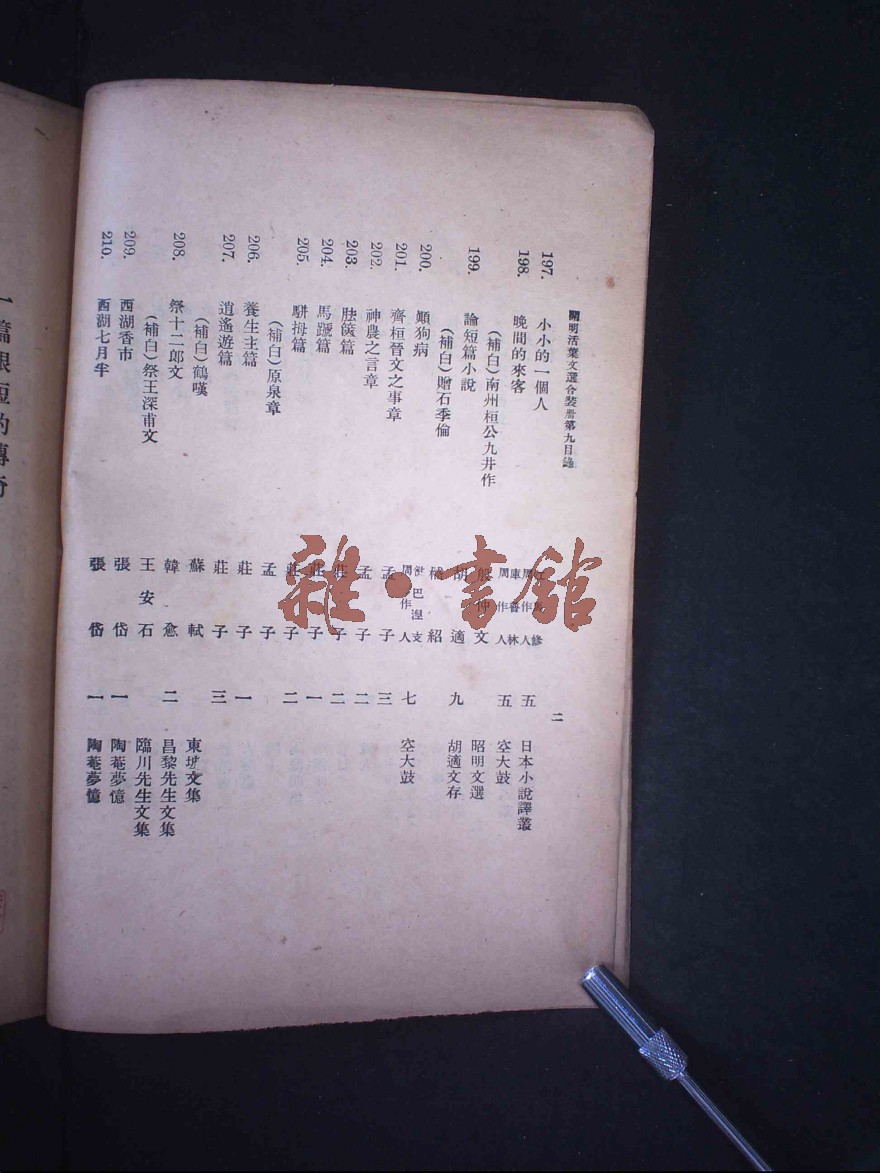 開明活葉文選合裝册第九目錄 二
197. 小小的一個人 江馬修 周作人 五 日本小說譯叢
198. 晚間的來客 庫普林 周作人 五 空大鼓
(補白)南州桓公九井作 殷仲文 昭明文選
199. 論短篇小說 胡適 九 胡適文存
(補白)贈石季倫 紹
200. 顚狗病 伊巴涅支 周作人 七 空大鼓
201. 齊桓晉文之事章 孟子 三
202. 神農之言章 孟子 二
203. 胠篋篇 莊子 二
204. 馬蹏篇 莊子 一
205. 駢拇篇 莊子 二
(補白)原泉章 孟子
206. 養生主篇 莊子 一
207. 逍遙遊篇 莊子 三
(補白)鶴嘆 蘇軾 東坡文集
208. 祭十二郎文 韓愈 二 昌黎先生文集
(補白)祭王深甫文 王安石 臨川先生文集
209. 西湖香市 張岱 一 陶菴夢憶
210. 西湖七月半 張岱 一 陶菴夢憶
一篇很短的傳奇
雜·書館